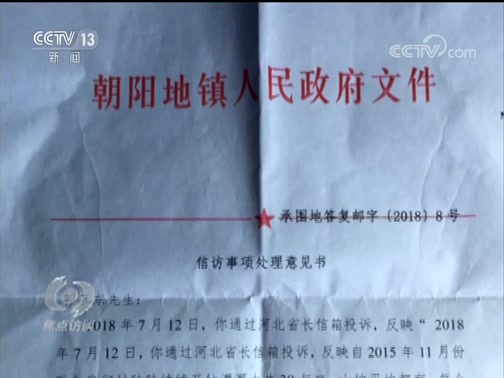 CCTV 13
新闻
CCTV.com
朝阳地镇人民政府文件
承围地答复邮字（2018）8号
信访事项处理意见书
东先生：
2018年7月12日，你通过河北省长信箱投诉，反映“2018
年7月12日，你通过河北省长信箱投诉，反映自2015年11月份
焦点访谈